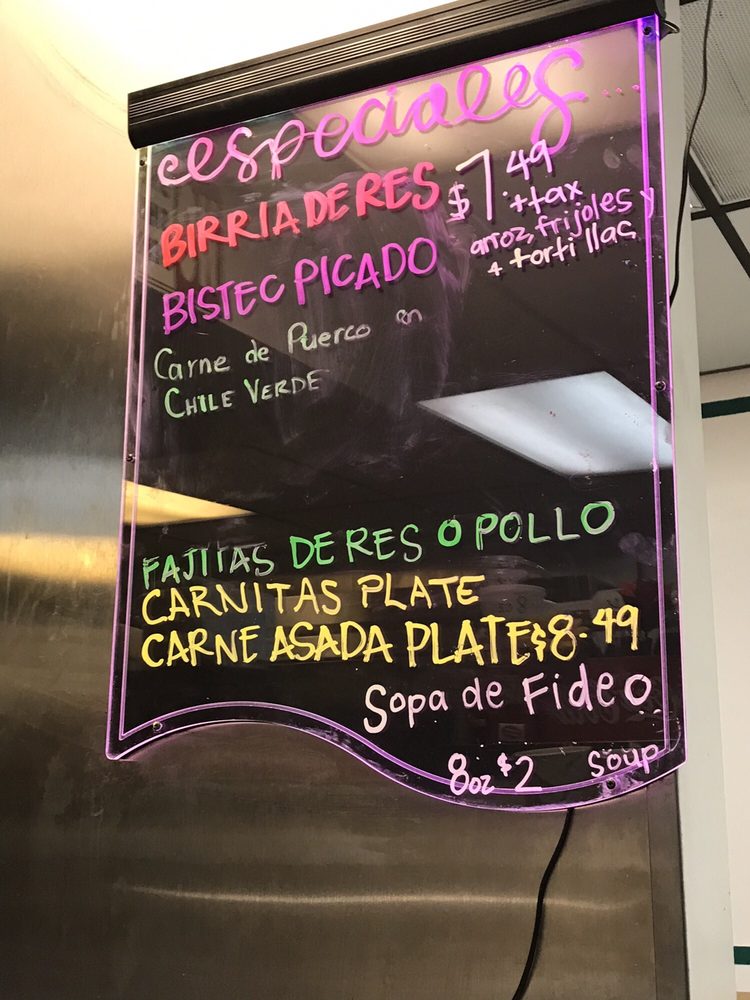 especiales...
BIRRIA DE RES $7.49
++tax
BISTEC PICADO arroz, frijoles y
+ tortillas
Carne de Puerco en
CHILE VERDE
FAJITAS DE RES O POLLO
CARNITAS PLATE
CARNE ASADA PLATE $8.49
Sopa de Fideo
8oz $2 Soup